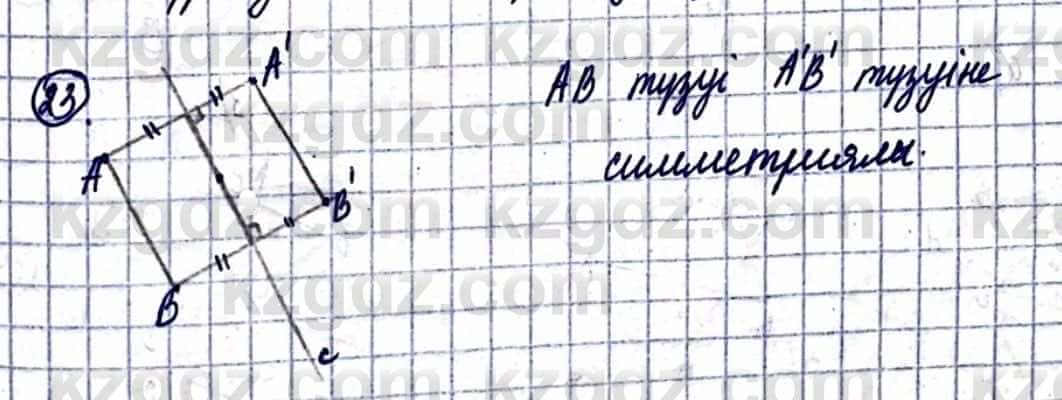 23.
A'
A
B'
B
c
AB түзуі A'B' түзуіне
симметриялы.
kzgdz.com
kzgdz.com
kzgdz.com
kzgdz.com
kzgdz.com
kzgdz.com
kzgdz.com
kzgdz.com